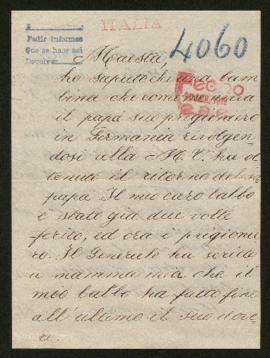 ITALIA
4060
Pedir informes
Que se haga asi
Devolver
Maestà,
ho saputo che una bam
bina che come me aveva
il papà suo prigioniero
in Germania rivolgen
dosi alla M. V. ha ot
tenuto il ritorno del
papà. Il mio caro babbo
è stato già due volte
ferito, ed ora è prigionie
ro. Il Generale ha scritto
a mamma mia che il
mio babbo ha fatto fino
all'ultimo il suo dove
re.